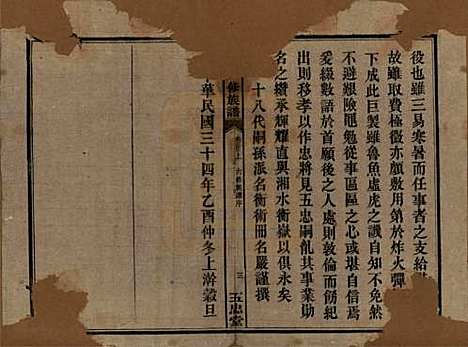 役也雖三易寒暑而任事者之支給
故雖取費極微亦顔敷用第於炸火彈
下成此巨製雖魯魚虛虎之譏自知不免然
不避艱險黽勉從事區區之心或堪自信焉
爰綴數語於首願後之人處則敦倫而飭紀
出則移孝以作忠將見五忠嗣龍其事業勛
名之纘承輝耀直與湘水衡嶽以俱永矣
十八代嗣孫派名衡術冊名嚴謹撰
華民國三十四年乙酉仲冬上澣穀旦
修族譜
六修族譜序
三
五忠堂